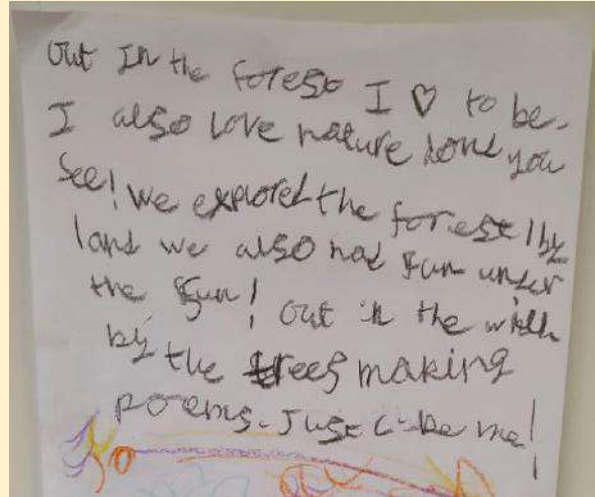 Out In the forest I ♡ to be.
I also love nature dond you
See! we explored the forest by
land we also had fun under
the Sun! Out in the wild
by the trees making
poems. Just like me!